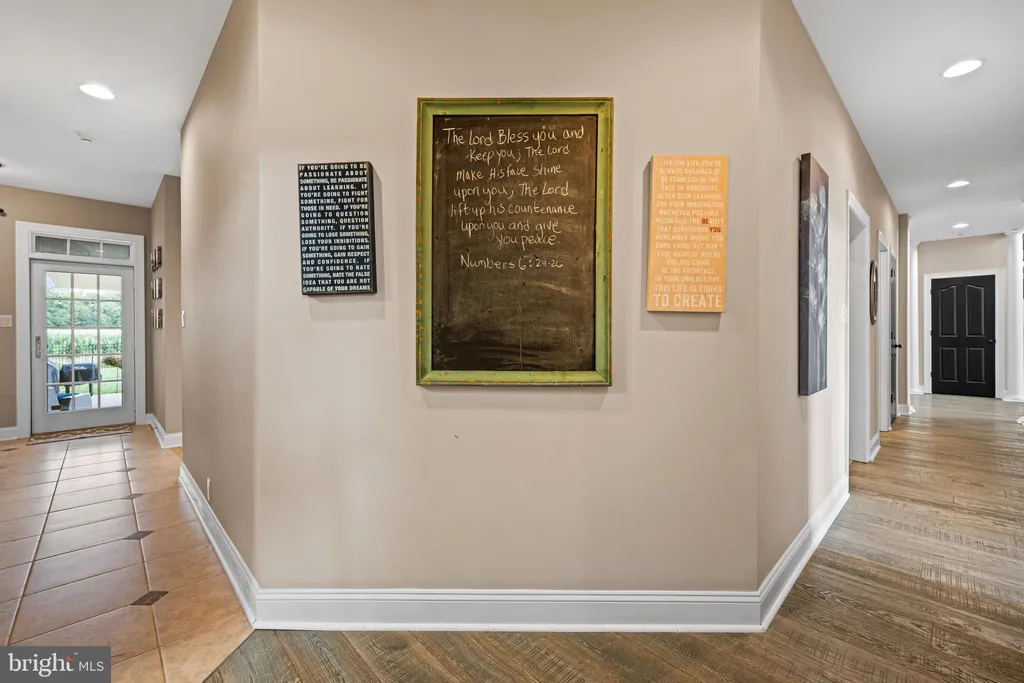 IF YOU'RE GOING TO BE
PASSIONATE ABOUT
SOMETHING, BE PASSIONATE
ABOUT LEARNING. IF
YOU'RE GOING TO FIGHT
SOMETHING, FIGHT FOR
THOSE IN NEED. IF YOU'RE
GOING TO QUESTION
SOMETHING, QUESTION
AUTHORITY. IF YOU'RE
GOING TO LOSE SOMETHING,
LOSE YOUR INHIBITIONS.
IF YOU'RE GOING TO GAIN
SOMETHING, GAIN RESPECT
AND CONFIDENCE. IF
YOU'RE GOING TO HATE
SOMETHING, HATE THE FALSE
IDEA THAT YOU ARE NOT
CAPABLE OF YOUR DREAMS
The Lord Bless you and
keep you; The Lord
make His face Shine
upon you; The Lord
lift up his countenance
upon you and give
you peace.
Numbers 6:24-26
LIVE THE LIFE YOU'VE
ALWAYS DREAMED OF
BE FEARLESS IN THE
FACE OF ADVERSITY.
NEVER STOP LEARNING.
USE YOUR IMAGINATION
WHENEVER POSSIBLE.
RECOGNIZE THE BEAUTY
THAT SURROUNDS YOU.
REMEMBER WHERE YOU
CAME FROM, BUT DON'T
LOSE SIGHT OF WHERE
YOU ARE GOING.
BE THE ARCHITECT
OF YOUR OWN DESTINY
THIS LIFE IS YOURS
TO CREATE
bright MLS